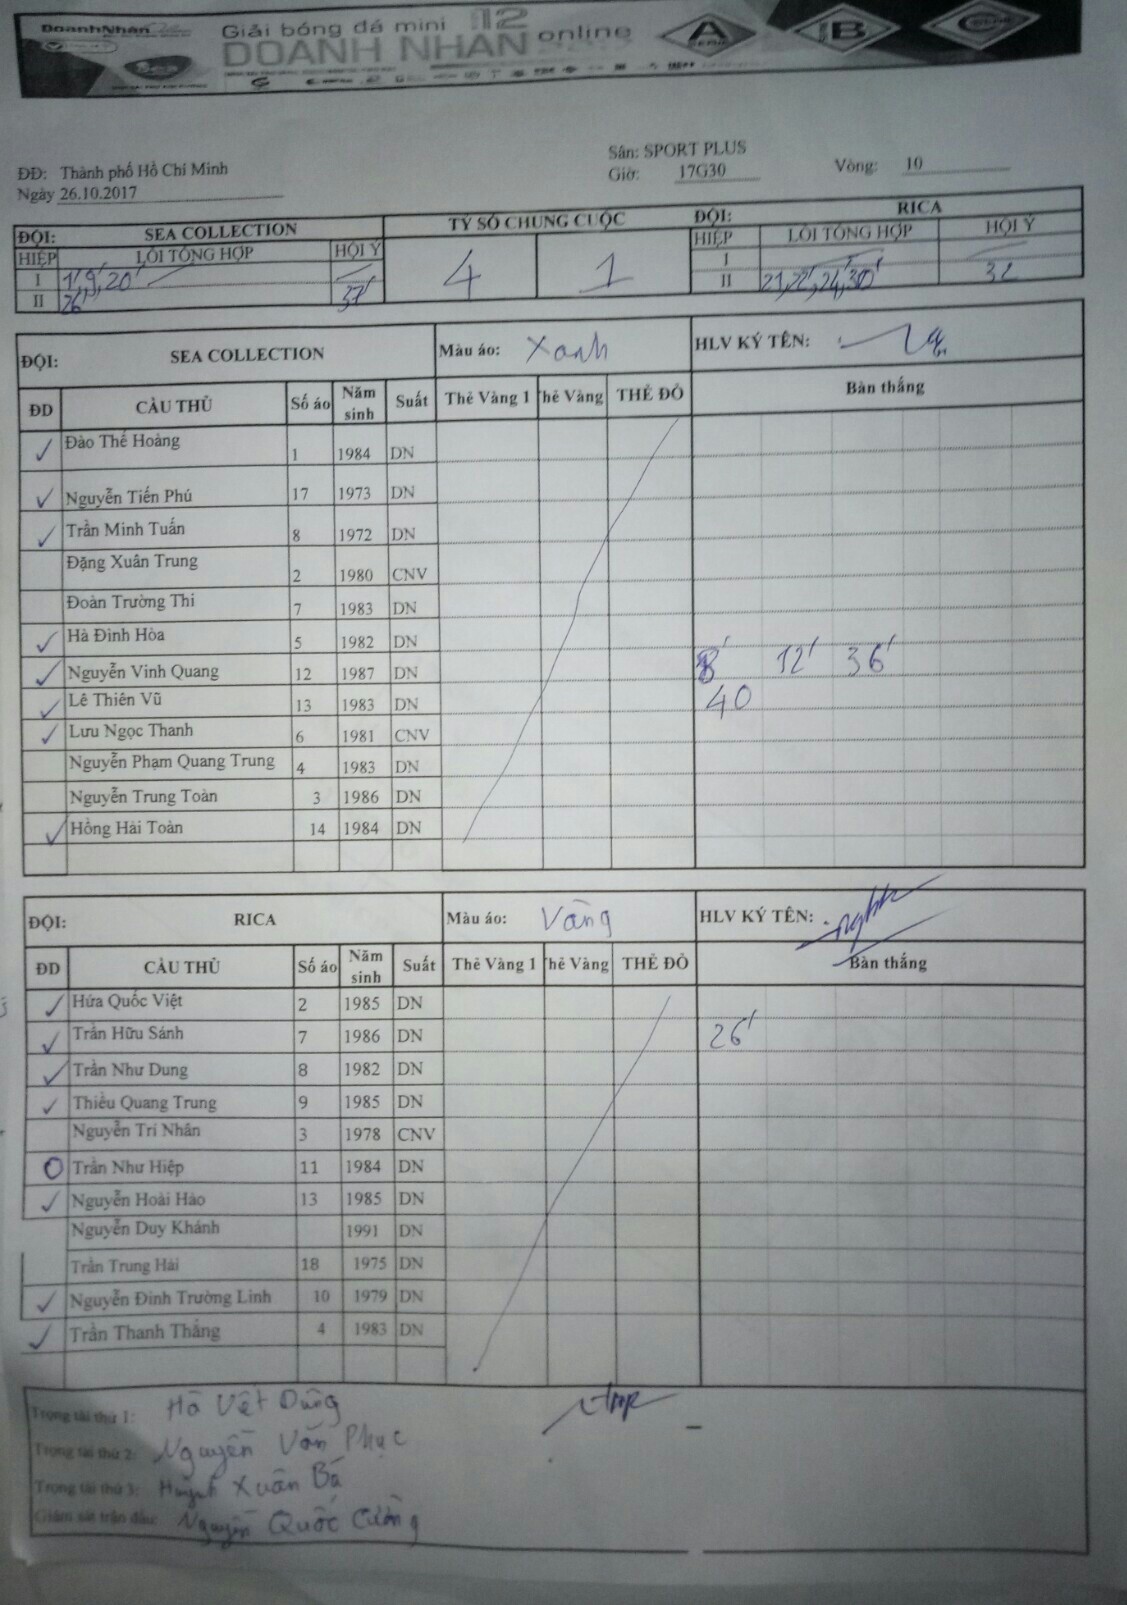 DoanhNhân
Giải bóng đá mini 12
DOANH NHÂN online
A
B
C
ĐĐ: Thành phố Hồ Chí Minh
Ngày 26.10.2017
Sân: SPORT PLUS
Giờ: 17G30
Vòng: 10
ĐỘI: SEA COLLECTION TỶ SỐ CHUNG CUỘC ĐỘI: RICA
HIỆP LỖI TỔNG HỢP HỘI Ý 4 1 HIỆP LỖI TỔNG HỢP HỘI Ý
I 1', 9', 20' I
II 26' 37' II 21, 22', 24', 30' 32
ĐỘI: SEA COLLECTION Màu áo: Xanh HLV KÝ TÊN:
ĐD CẦU THỦ Số áo Năm sinh Suất Thẻ Vàng 1 Thẻ Vàng THẺ ĐỎ Bàn thắng
Đào Thế Hoàng 1 1984 DN
Nguyễn Tiến Phú 17 1973 DN
Trần Minh Tuấn 8 1972 DN
Đặng Xuân Trung 2 1980 CNV
Đoàn Trường Thi 7 1983 DN
Hà Đình Hòa 5 1982 DN
Nguyễn Vinh Quang 12 1987 DN 8' 12' 36'
Lê Thiên Vũ 13 1983 DN 40
Lưu Ngọc Thanh 6 1981 CNV
Nguyễn Phạm Quang Trung 4 1983 DN
Nguyễn Trung Toàn 3 1986 DN
Hồng Hải Toàn 14 1984 DN
ĐỘI: RICA Màu áo: Vàng HLV KÝ TÊN:
ĐD CẦU THỦ Số áo Năm sinh Suất Thẻ Vàng 1 Thẻ Vàng THẺ ĐỎ Bàn thắng
Hứa Quốc Việt 2 1985 DN
Trần Hữu Sánh 7 1986 DN 26'
Trần Như Dung 8 1982 DN
Thiều Quang Trung 9 1985 DN
Nguyễn Trí Nhân 3 1978 CNV
Trần Như Hiệp 11 1984 DN
Nguyễn Hoài Hào 13 1985 DN
Nguyễn Duy Khánh 1991 DN
Trần Trung Hải 18 1975 DN
Nguyễn Đình Trường Linh 10 1979 DN
Trần Thanh Thắng 4 1983 DN
Trọng tài thứ 1: Hà Việt Dũng
Trọng tài thứ 2: Nguyễn Văn Phục
Trọng tài thứ 3: Huỳnh Xuân Bá
Giám sát trận đấu: Nguyễn Quốc Cường